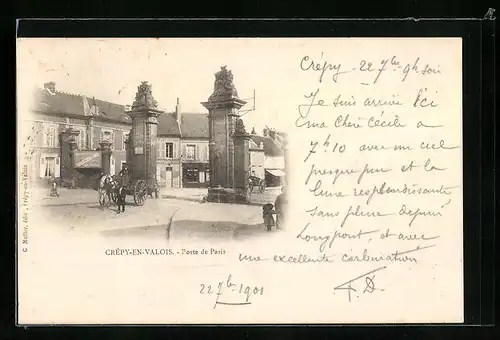 Crépy - 22 7bre 9h soir
Je suis arrivé Ici
ma Chère Cécile a
7h 10 avec un ciel
presque pur et la
lune resplendissante
sans pluie depuis
Longpont, et avec
une excellente carburation
F.D.
CRÉPY-EN-VALOIS. - Porte de Paris
22 7bre 1901
édit., Crépy-en-Valois